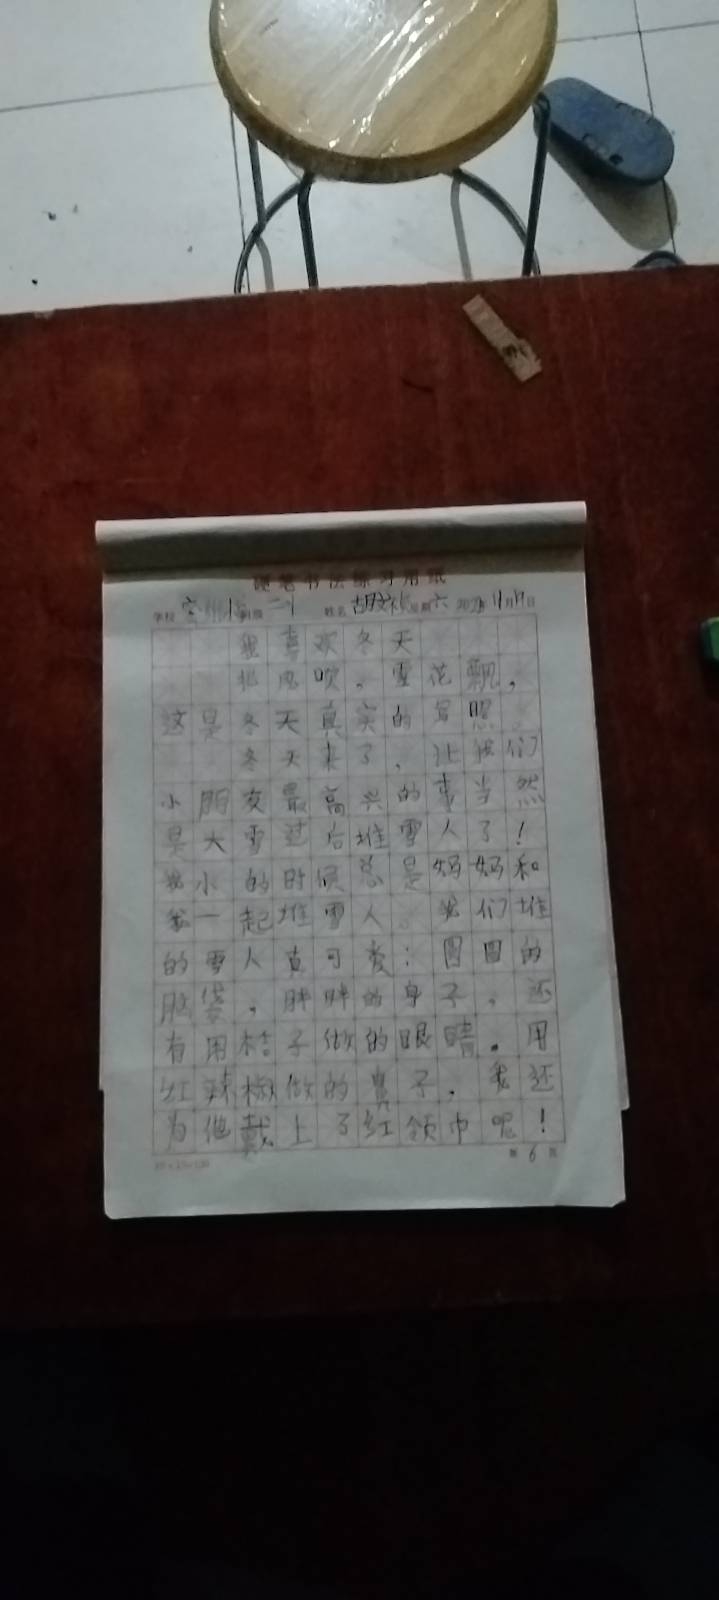 硬笔书法练习用纸
学校 班级 二 姓名 胡 星期六 月 日
我喜欢冬天
北风吹。雪花飘,
这是冬天真实的写照。
冬天来了,让我们
小朋友最高兴的事当然
是大雪过后堆雪人了!
我小的时候总是妈妈和
我一起堆雪人。我们堆
的雪人真可爱:圆圆的
脑袋,胖胖的身子,还
有用桔子做的眼睛。用
红辣椒做的鼻子,我还
为他戴上了红领巾呢!
第 6 页